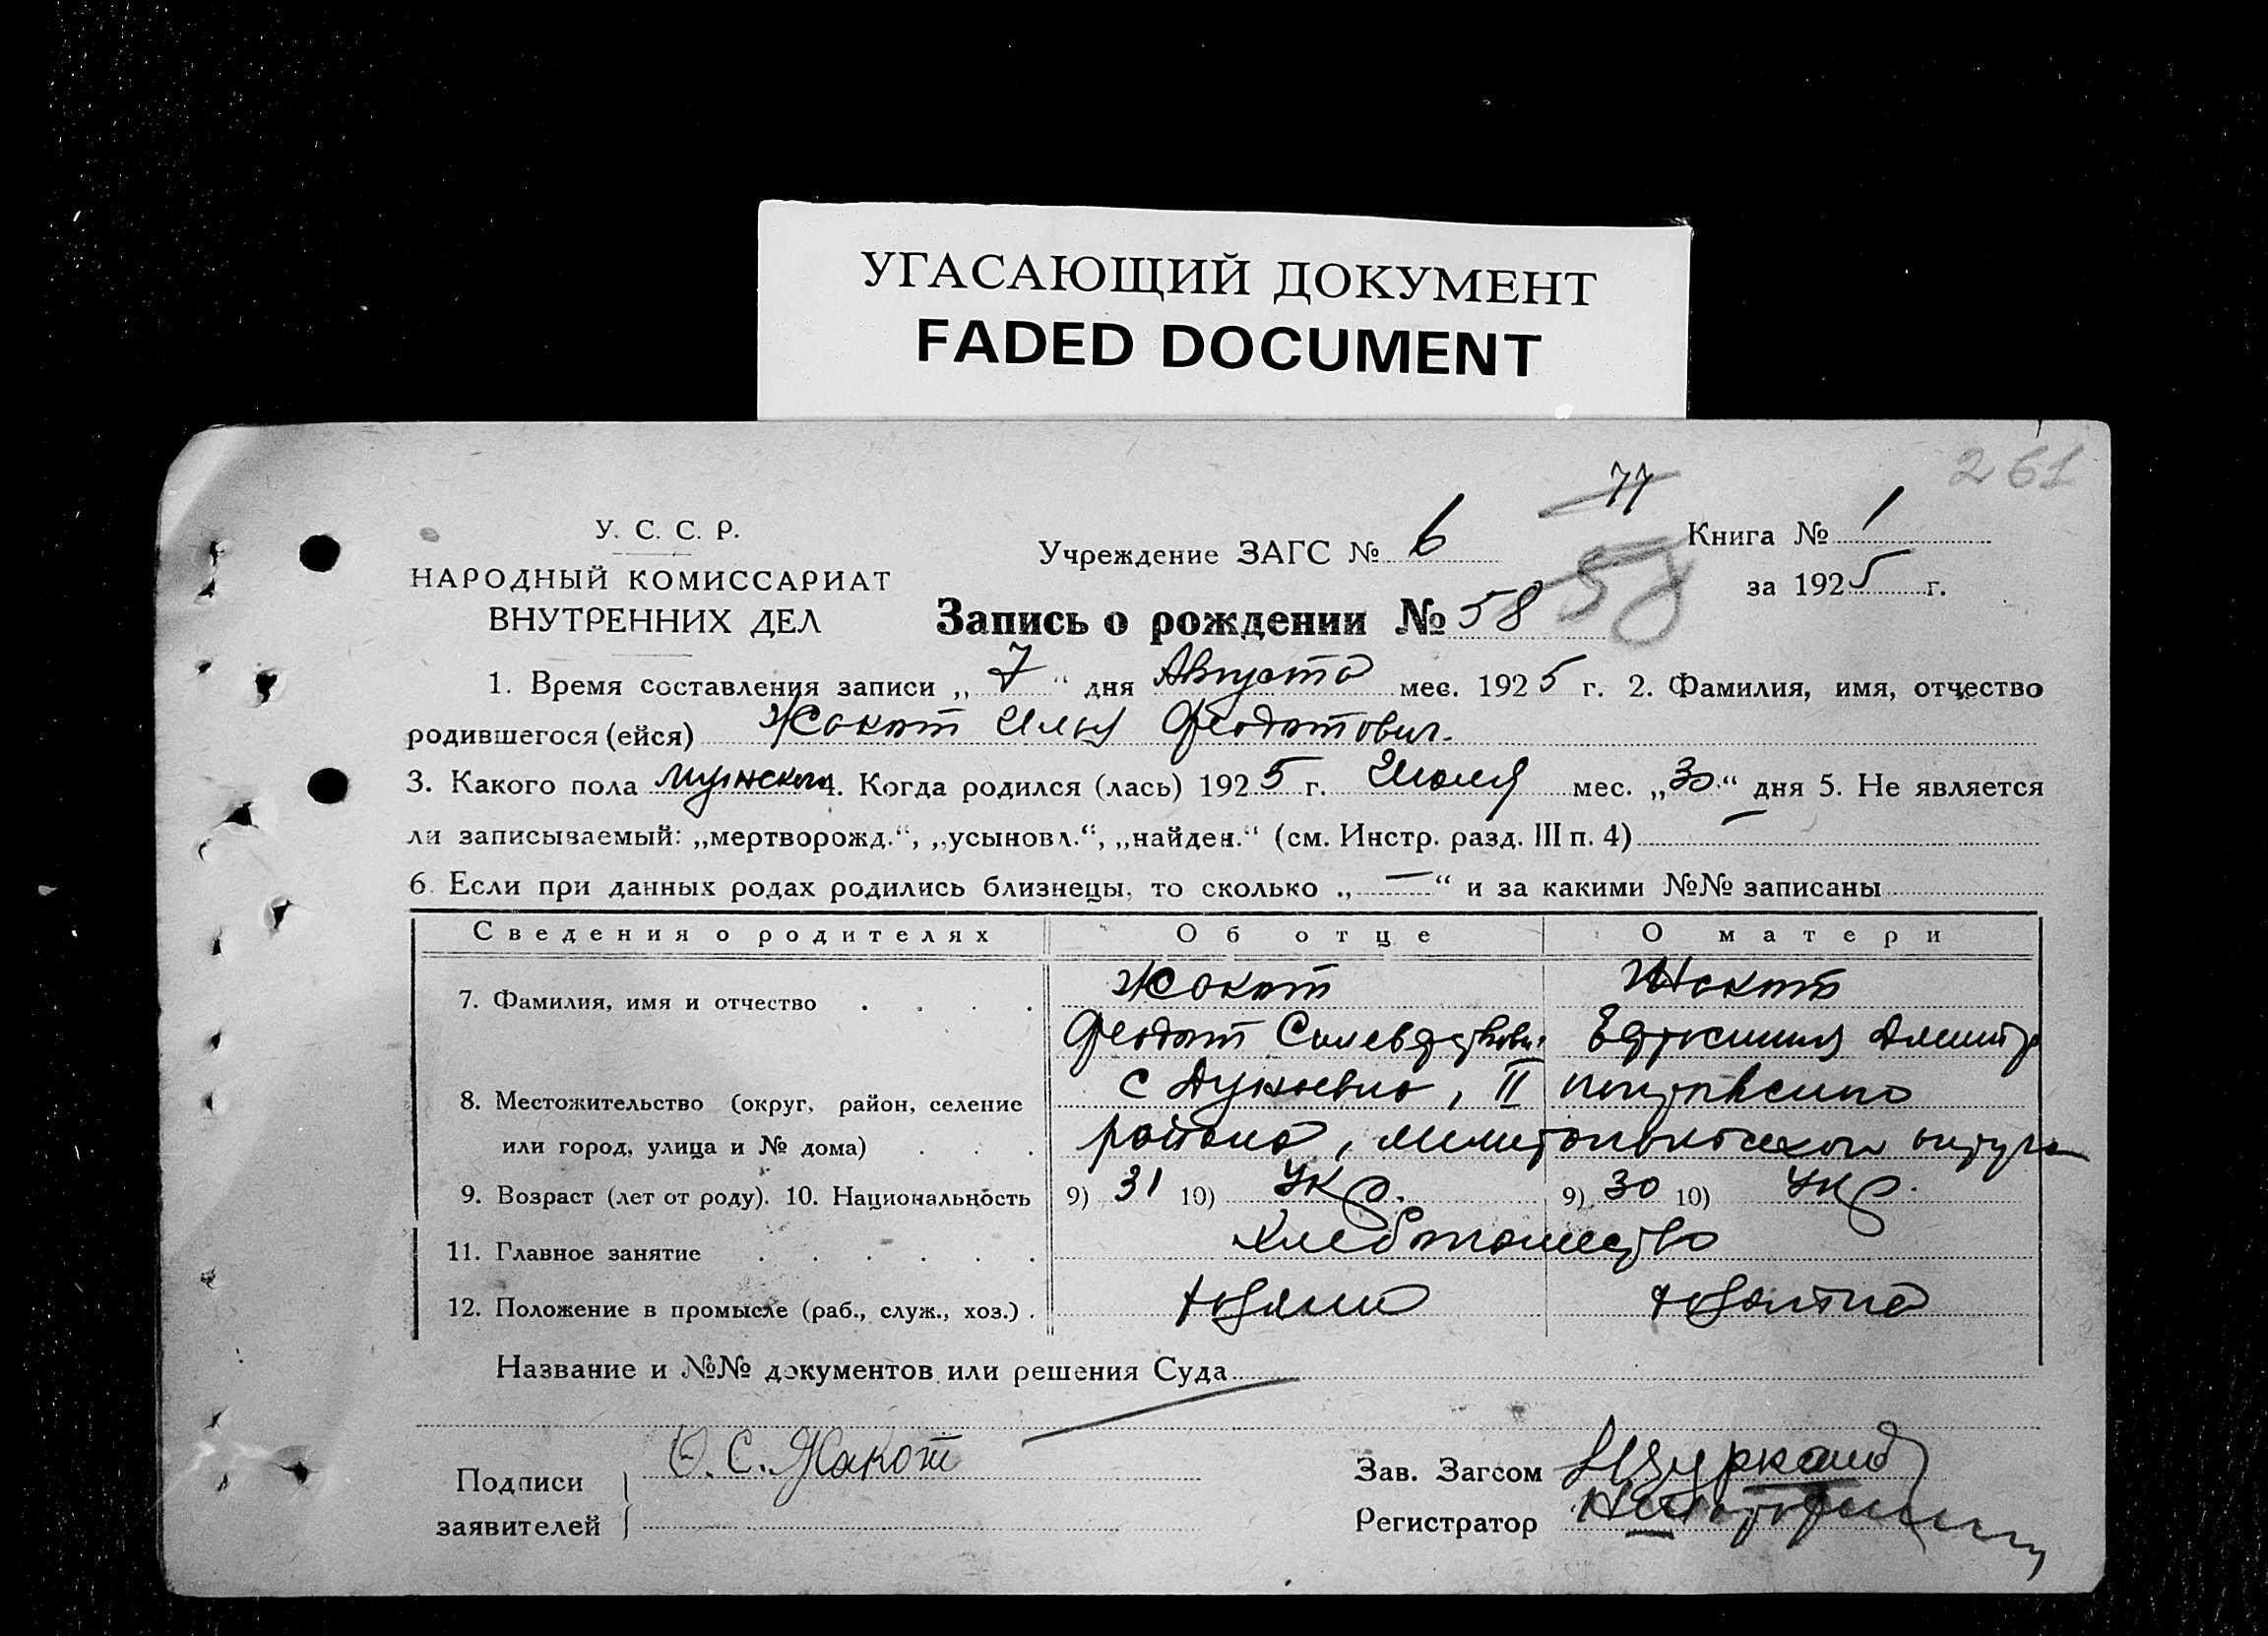 УГАСАЮЩИЙ ДОКУМЕНТ
FADED DOCUMENT
261
77
У. С. С. Р.
НАРОДНЫЙ КОМИССАРИАТ
ВНУТРЕННИХ ДЕЛ
Учреждение ЗАГС № 6
Книга № 1
за 1925 г.
Запись о рождении № 58 58
1. Время составления записи „7“ дня Августа мес. 1925 г. 2. Фамилия, имя, отчество
родившегося (ейся) Жакот Илья Феодотович.
3. Какого пола мужского 4. Когда родился (лась) 1925 г. Июля мес. „30“ дня 5. Не является
ли записываемый: „мертворожд.“, „усыновл.“, „найден.“ (см. Инстр. разд. III п. 4) —
6. Если при данных родах родились близнецы, то сколько „—“ и за какими №№ записаны
Сведения о родителях Об отце О матери
7. Фамилия, имя и отчество Жакот Жакот
Феодот Ефросиния Дмитр
8. Местожительство (округ, район, селение с , II
или город, улица и № дома) района, Мелитопольского округа
9. Возраст (лет от роду). 10. Национальность 9) 31 10) Укр. 9) 30 10) Укр.
11. Главное занятие Хлебопашество
12. Положение в промысле (раб., служ., хоз.)
Название и №№ документов или решения Суда
Подписи
заявителей
Ѳ. С. Жакот
Зав. Загсом
Регистратор